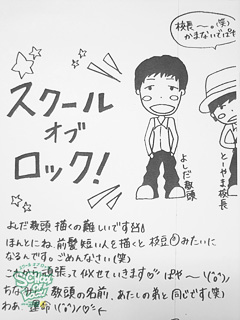 校長〜。(笑)
かまないでばや
スクール
オブ
ロック!
よしだ教頭
とーやま校長
よしだ教頭 描くの難しいですね!!
ほんとにね、前髪短い人を描くと枝豆みたいに
なるんです。ごめんなさい(笑)
これから頑張って似せていきます♡ ぱや〜!(^o^)
ちなみに、教頭の名前、あたしの弟と同じです(笑)
わあ 運命!(^o^)/♡